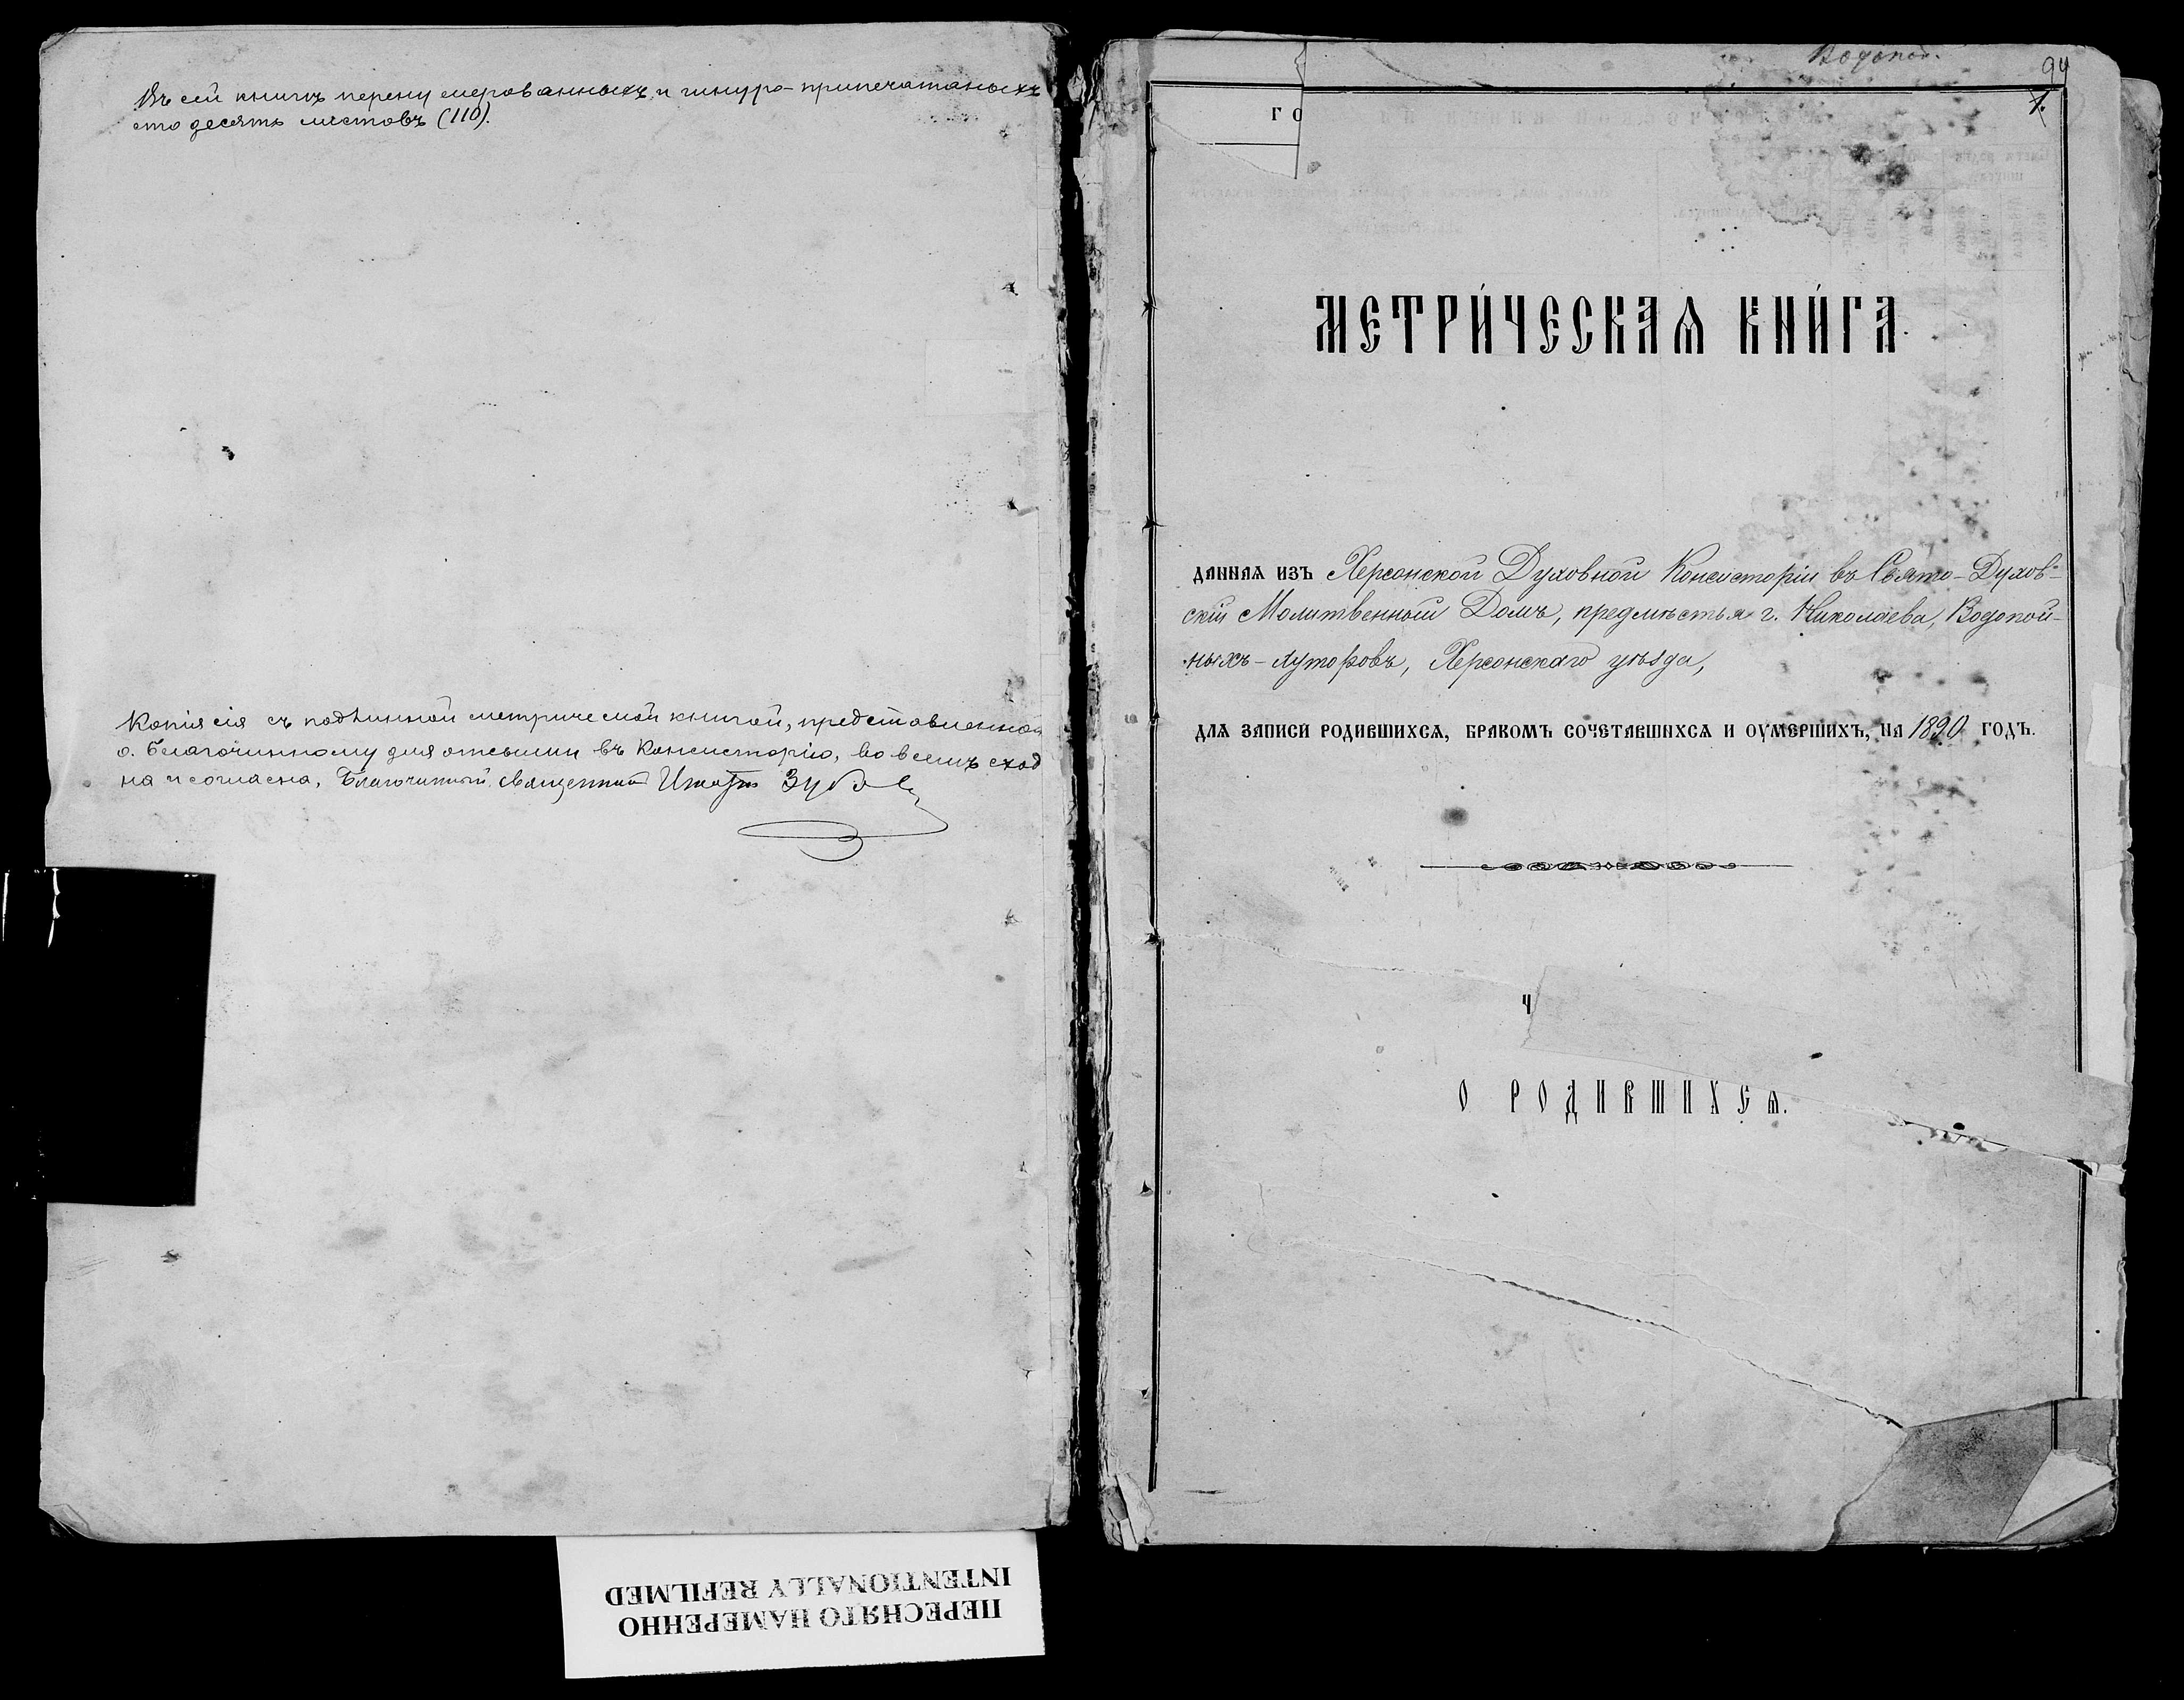 Въ сей книгѣ перенумерованныхъ и шнуро-припечатаныхъ
сто десять листовъ (110).
Копія сія съ подлинной метрической книгой, представленной
о. благочинному для отсылки въ Консисторію, во всемъ сход
на и согласна. Благочинный священникъ
ПЕРЕСНЯТО НАМЕРЕННО
INTENTIONALLY REFILMED
Водопой.
94
1.
ГО
МЕТРИ́ЧЕСКАѦ КНИ́ГА
ДАННАѦ ИЗЪ Херсонской Духовной Консисторіи въ Свято-Духов-
скій Молитвенный Домъ, предмѣстья г. Николаева, Водопой-
ныхъ-хуторовъ, Херсонскаго уѣзда,
ДЛѦ ЗАПИСИ РОДИВШИХСѦ, БРАКОМЪ СОЧЕТАВШИХСѦ И ОУМЕРШИХЪ, НА 1890 ГОДЪ.
Ч
О РОДИВШИХСѦ.